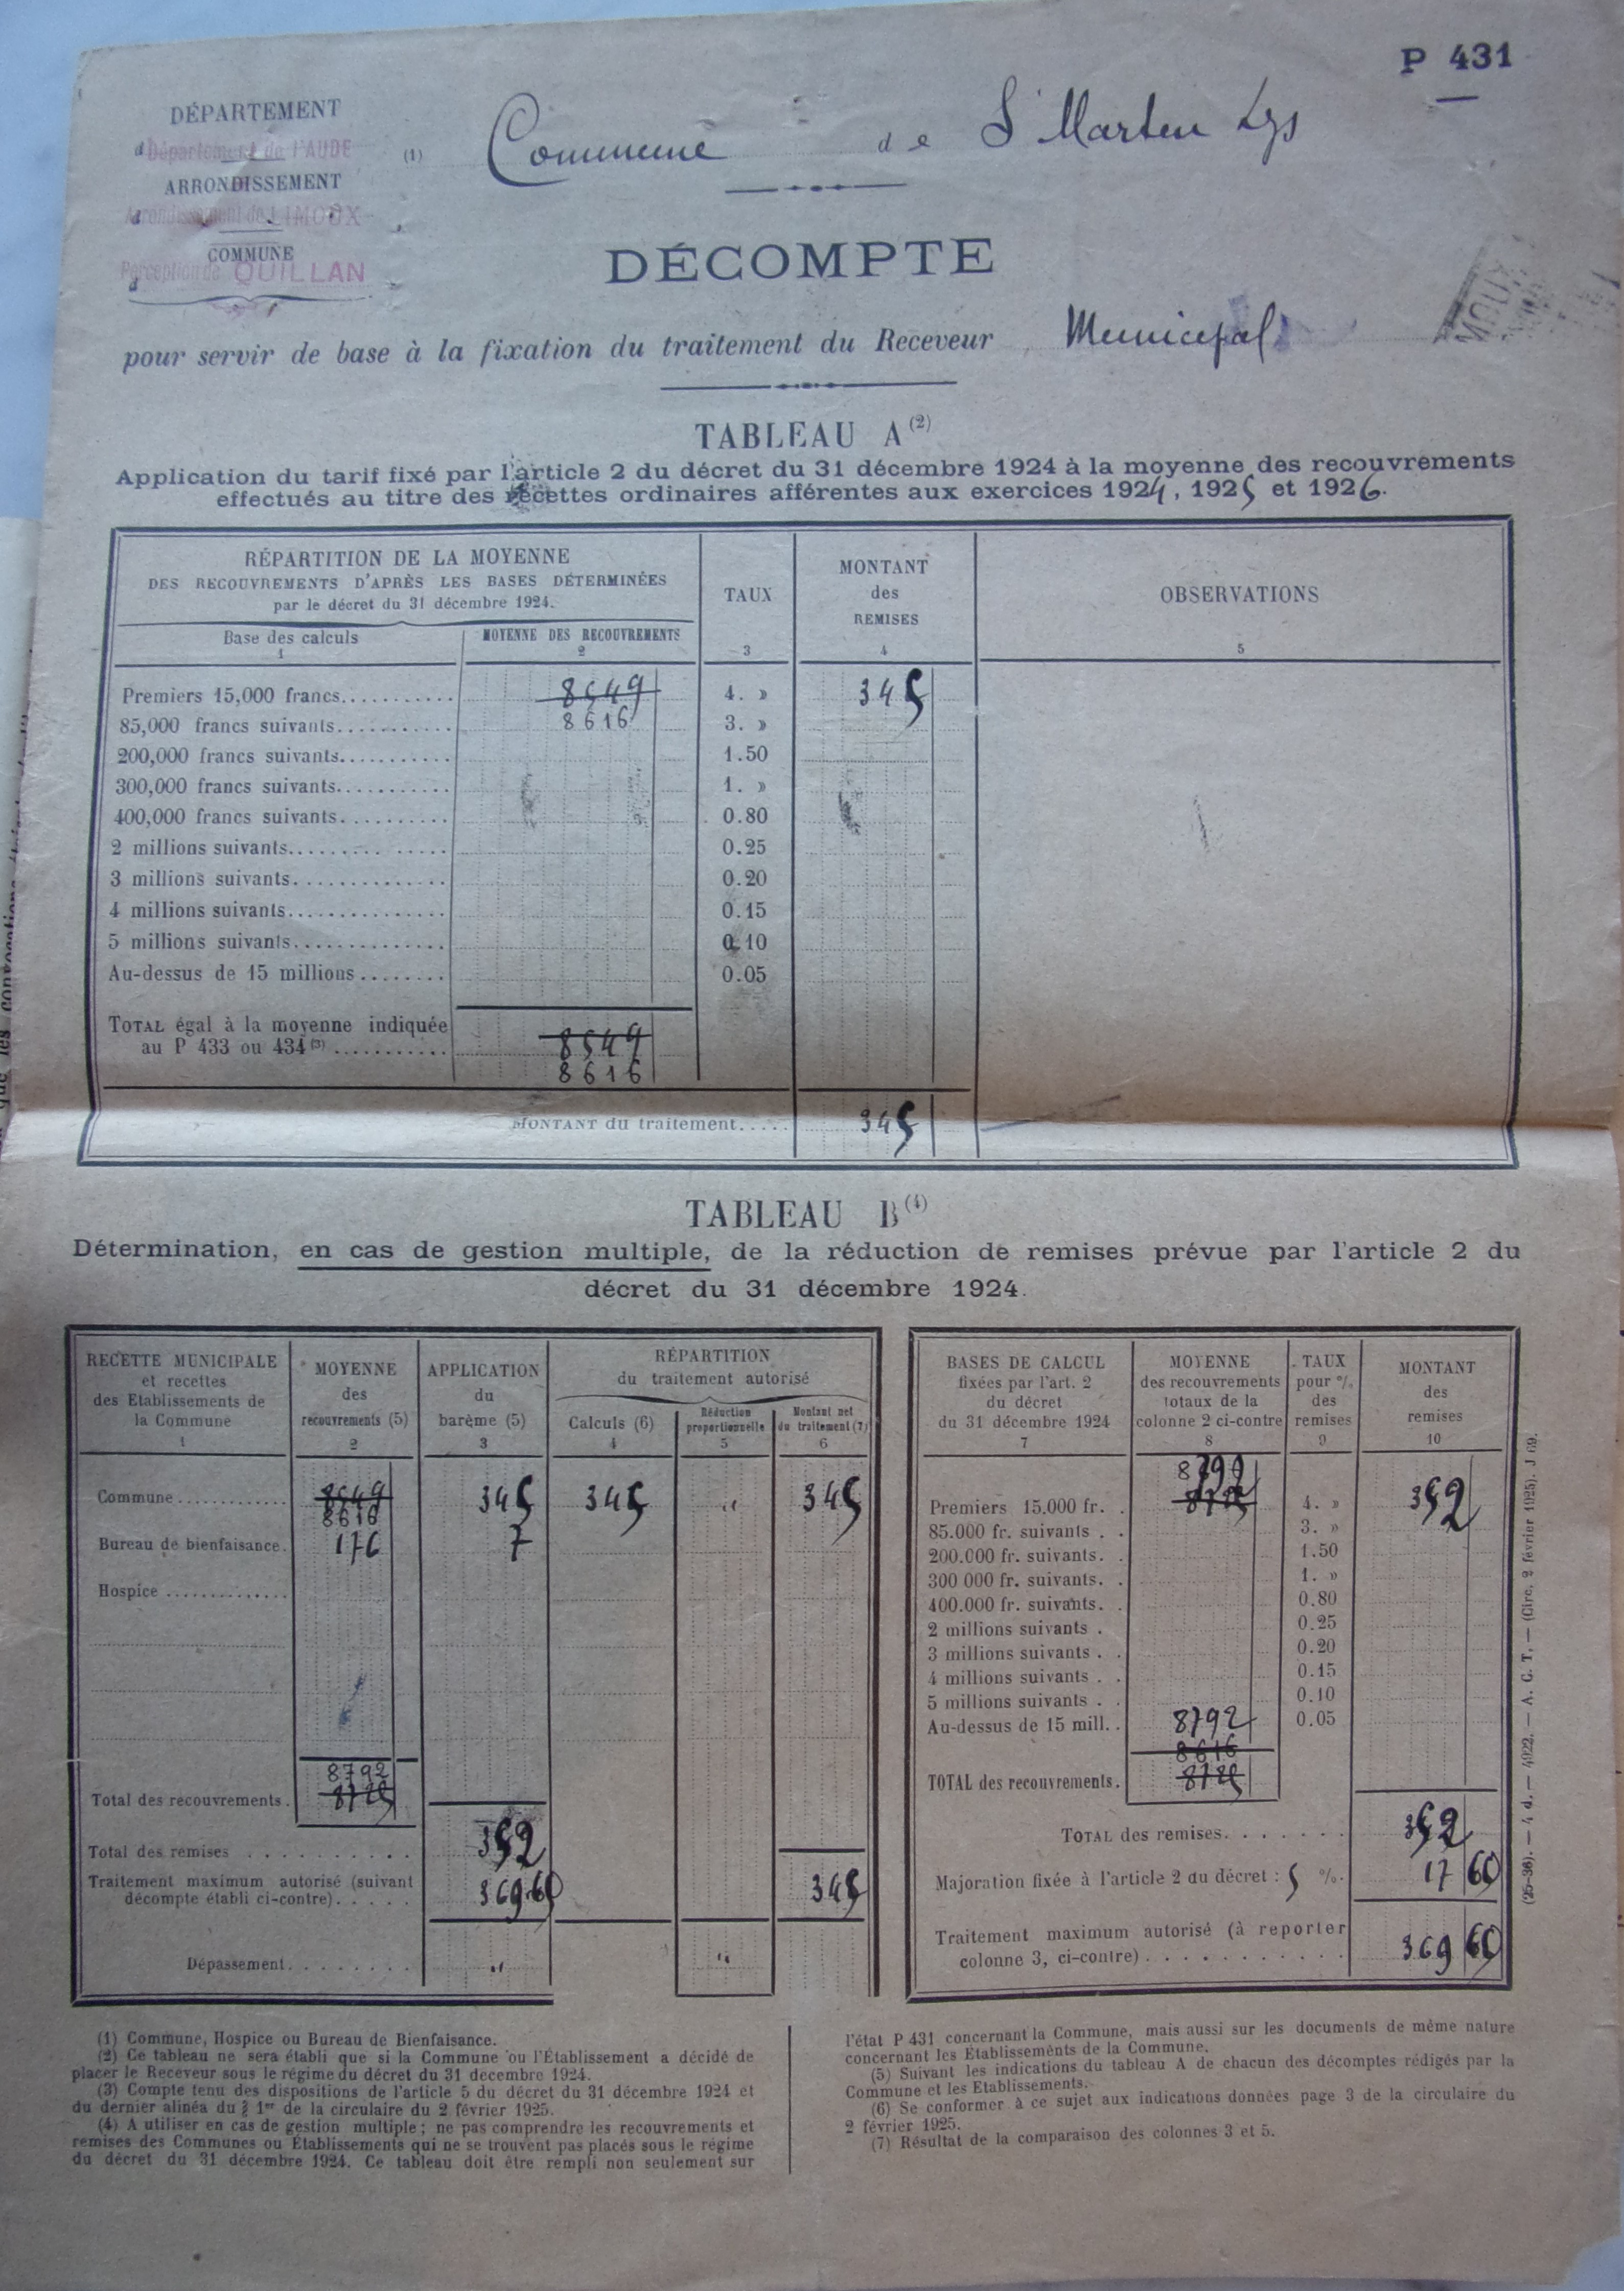 P 431
DÉPARTEMENT
d Département de l'AUDE
ARRONDISSEMENT
d Arrondissement de LIMOUX
COMMUNE
d Perception de QUILLAN
(1) Commune de St Martin Lys
DÉCOMPTE
pour servir de base à la fixation du traitement du Receveur Municipal
TABLEAU A (2)
Application du tarif fixé par l'article 2 du décret du 31 décembre 1924 à la moyenne des recouvrements
effectués au titre des recettes ordinaires afférentes aux exercices 1924, 1925 et 1926.
RÉPARTITION DE LA MOYENNE
DES RECOUVREMENTS D'APRÈS LES BASES DÉTERMINÉES
par le décret du 31 décembre 1924.
Base des calculs
1
MOYENNE DES RECOUVREMENTS
2
TAUX
3
MONTANT
des
REMISES
4
OBSERVATIONS
5
Premiers 15,000 francs........... 8549 4. » 345
85,000 francs suivants........... 8616 3. »
200,000 francs suivants........... 1.50
300,000 francs suivants........... 1. »
400,000 francs suivants.......... 0.80
2 millions suivants......... ..... 0.25
3 millions suivants.............. 0.20
4 millions suivants.............. 0.15
5 millions suivants.............. 0.10
Au-dessus de 15 millions ........ 0.05
TOTAL égal à la moyenne indiquée
au P 433 ou 434 (3) ........... 8549
8616
MONTANT du traitement..... 345
TABLEAU B (4)
Détermination, en cas de gestion multiple, de la réduction de remises prévue par l'article 2 du
décret du 31 décembre 1924.
RECETTE MUNICIPALE
et recettes
des Etablissements de
la Commune
1
MOYENNE
des
recouvrements (5)
2
APPLICATION
du
barème (5)
3
RÉPARTITION
du traitement autorisé
Calculs (6)
4
Réduction
proportionnelle
5
Montant net
du traitement (7)
6
Commune ............ 8549 345 345 " 345
8616
Bureau de bienfaisance. 176 7
Hospice ..............
8792
Total des recouvrements. 8725
Total des remises .......... 352
Traitement maximum autorisé (suivant
décompte établi ci-contre)..... 369.60 345
Dépassement........ " "
BASES DE CALCUL
fixées par l'art. 2
du décret
du 31 décembre 1924
7
MOYENNE
des recouvrements
totaux de la
colonne 2 ci-contre
8
TAUX
pour %
des
remises
9
MONTANT
des
remises
10
8792
Premiers 15.000 fr. . 8725 4. » 352
85.000 fr. suivants . . 3. »
200.000 fr. suivants. . 1.50
300 000 fr. suivants. . 1. »
400.000 fr. suivants. . 0.80
2 millions suivants . 0.25
3 millions suivants . . 0.20
4 millions suivants . . 0.15
5 millions suivants . . 0.10
Au-dessus de 15 mill. . 8792 0.05
8616
TOTAL des recouvrements. 8725
TOTAL des remises....... 352
Majoration fixée à l'article 2 du décret : 5 %. 17 60
Traitement maximum autorisé (à reporter
colonne 3, ci-contre) ........... 369 60
(25-36). — 4 d. — 4922. — A. G. T. — (Circ. 2 février 1925). J 69.
(1) Commune, Hospice ou Bureau de Bienfaisance.
(2) Ce tableau ne sera établi que si la Commune ou l'Établissement a décidé de
placer le Receveur sous le régime du décret du 31 décembre 1924.
(3) Compte tenu des dispositions de l'article 5 du décret du 31 décembre 1924 et
du dernier alinéa du § 1er de la circulaire du 2 février 1925.
(4) A utiliser en cas de gestion multiple ; ne pas comprendre les recouvrements et
remises des Communes ou Établissements qui ne se trouvent pas placés sous le régime
du décret du 31 décembre 1924. Ce tableau doit être rempli non seulement sur
l'état P 431 concernant la Commune, mais aussi sur les documents de même nature
concernant les Etablissements de la Commune.
(5) Suivant les indications du tableau A de chacun des décomptes rédigés par la
Commune et les Etablissements.
(6) Se conformer à ce sujet aux indications données page 3 de la circulaire du
2 février 1925.
(7) Résultat de la comparaison des colonnes 3 et 5.